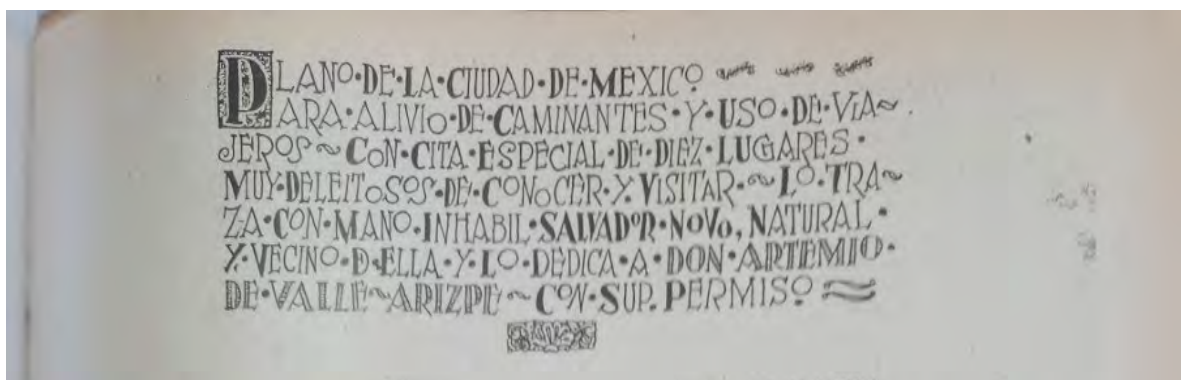 PLANO·DE·LA·CIUDAD·DE·MEXICO
PARA·ALIVIO·DE·CAMINANTES·Y·USO·DE·VIA~
JEROS~CON·CITA·ESPECIAL·DE·DIEZ·LUGARES·
MUY·DELEITOSOS·DE·CONOCER·Y·VISITAR·~LO·TRA~
ZA·CON·MANO·INHABIL·SALVADOR·NOVO, NATURAL·
Y·VECINO·D·ELLA·Y·LO·DEDICA·A·DON·ARTEMIO·
DE·VALLE~ARIZPE~CON·SUP. PERMISO